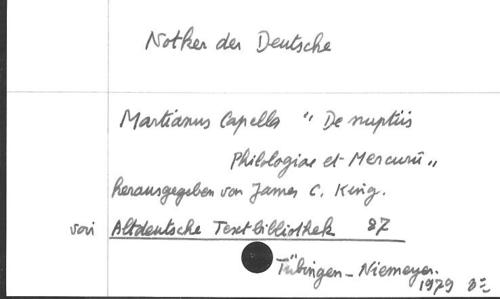 Notker der Deutsche
Martianus Capella "De nuptiis
Philologiae et Mercurii"
herausgegeben von James C. King.
voir Altdeutsche Textbibliothek 87
Tübingen - Niemeyer.
1979